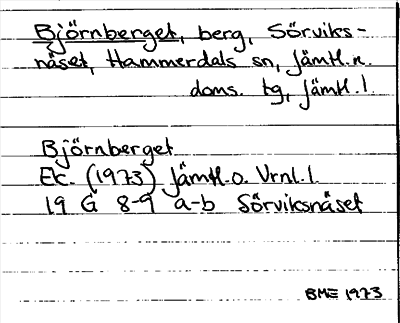 Björnberget, berg, Sörviks-
näset, Hammerdals sn, Jämtl. n.
doms. tg, Jämtl. l.
Björnberget
Ec. (1973) Jämtl. o. Vrnl. l.
19 G 8-9 a-b Sörviksnäset
BME 1973